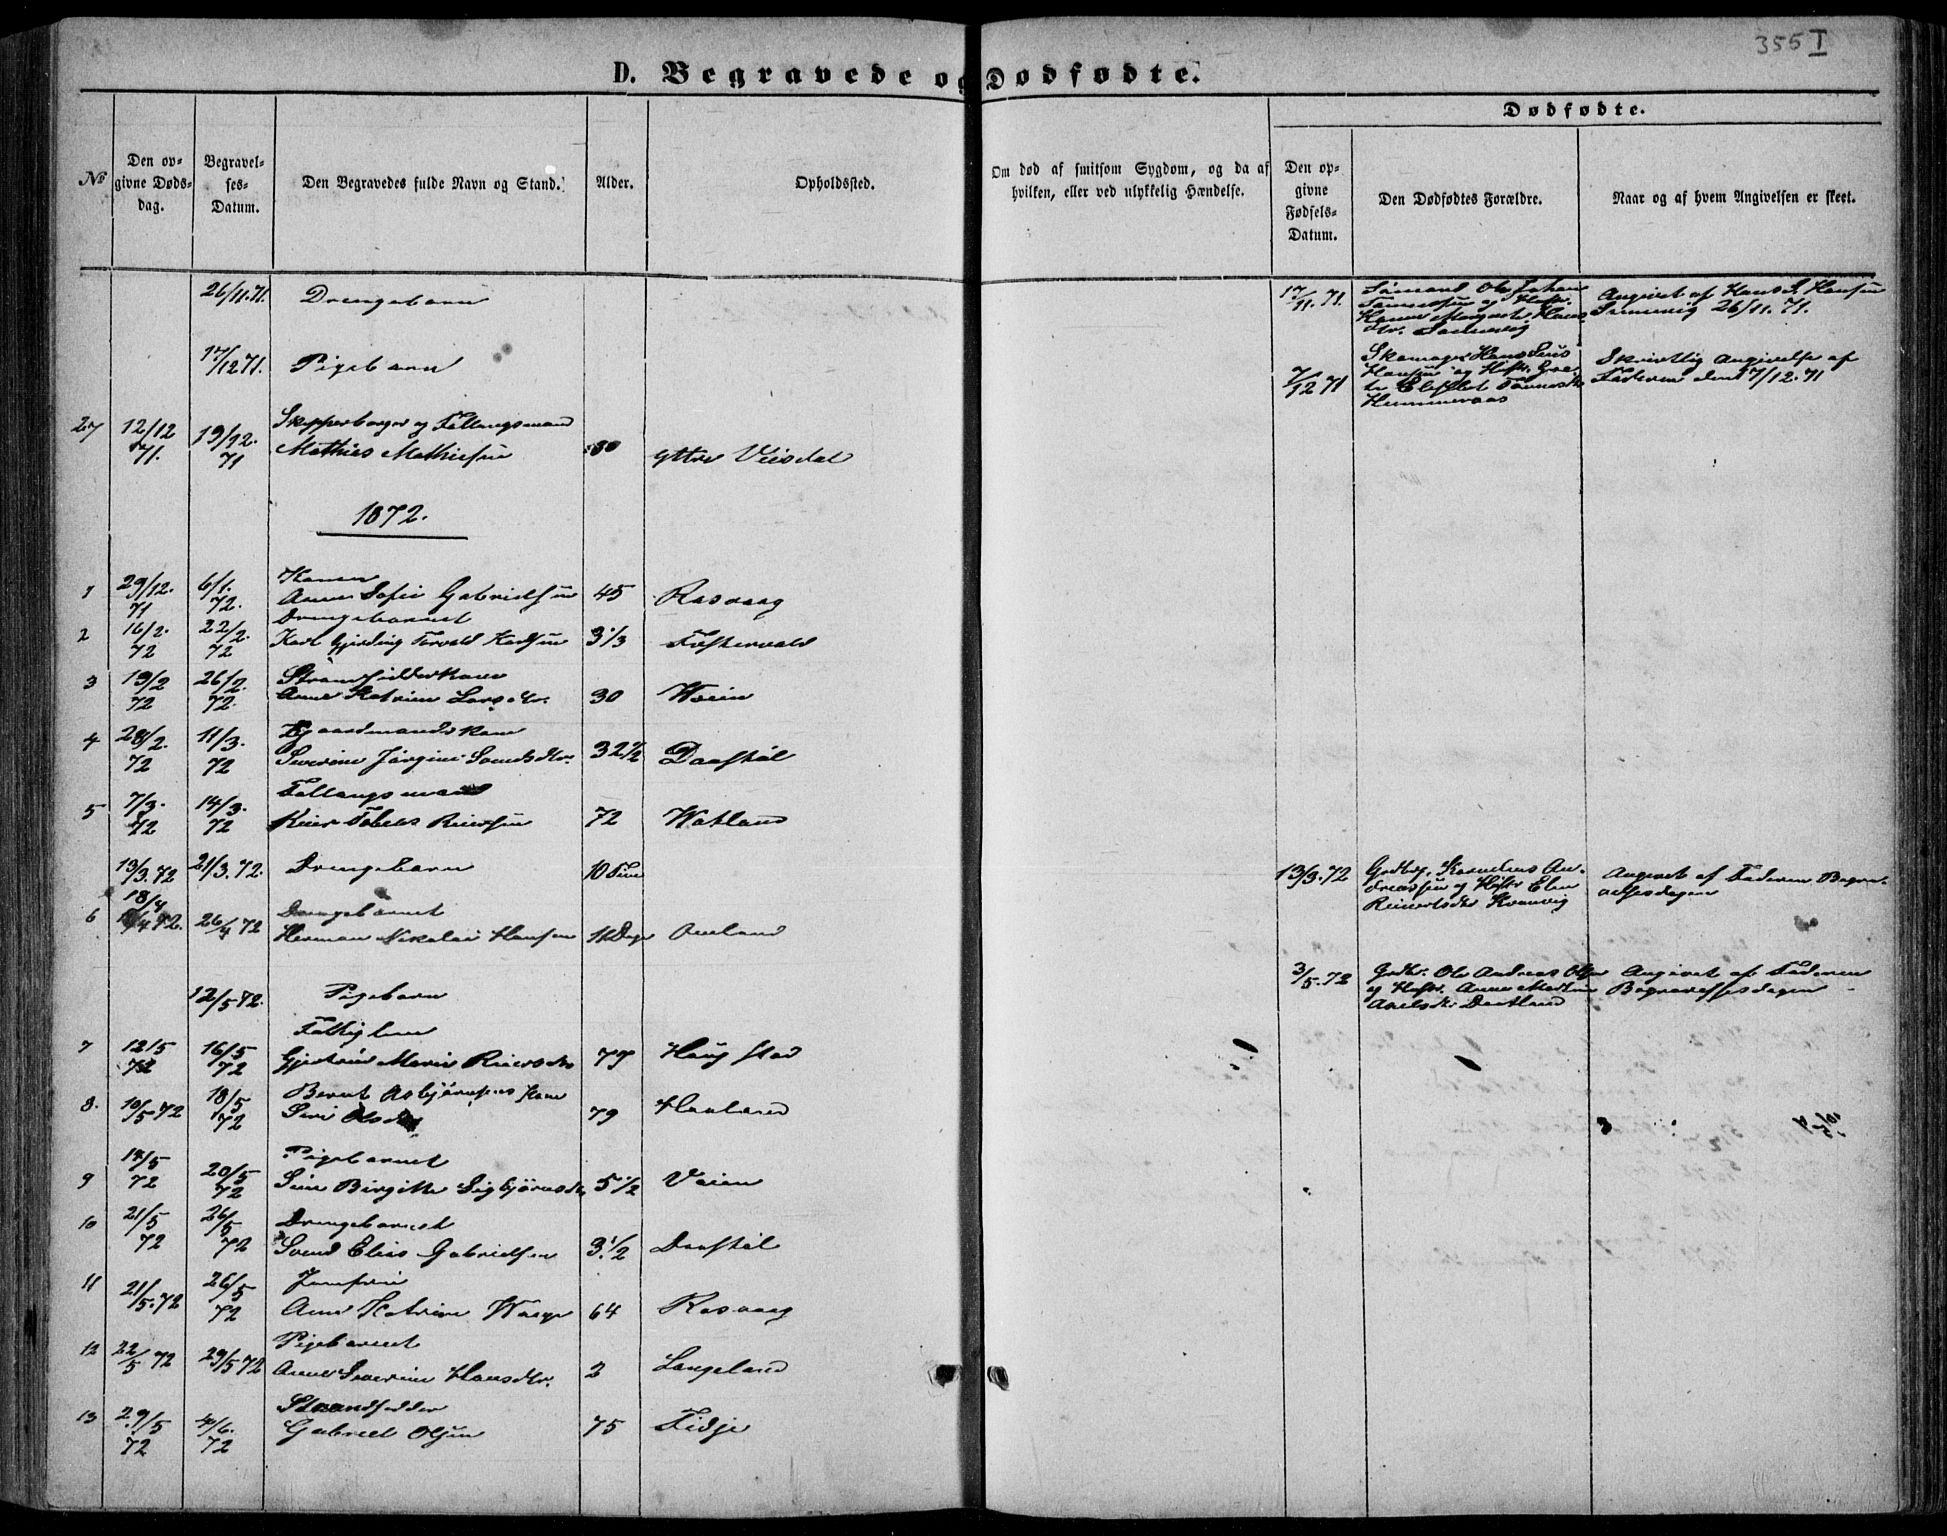 355 I
D. Begravede og Dødfødte.
Dødfødte.
№
Den opgivne Dødsdag.
Begravelses-Datum.
Den Begravedes fulde Navn og Stand.
Alder.
Opholdssted.
Om død af smitsom Sygdom, og da af
hvilken, eller ved ulykkelig Hændelse.
Den opgivne Fødsels-Datum.
Den Dødfødtes Forældre.
Naar og af hvem Angivelsen er skeet.
26/11.71. Drengebarn
17/11.71. Sømand Ole Johan
og Hstr.
Hans
dtr.
Angivet af Hans Hansen
26/11.71.
17/12 71. Pigebarn
7/12 71 Skomager Hans
Hansen og Hstr.
Skrivtlig Angivelse af
Faderen den 17/12.71
27 12/12 71. 19/12. 71 Skipperborger og Føllaugsmand
Mathies Mathiesen 80 yttre Veisdal
1872.
1 29/12. 71 6/1. 72. Konen
Anne Sofie Gabrielsen 45 Rasvaag
2 16/2. 72 22/2. 72 Drengebarnet
Karl Gjerding Torvald Karlsen 3 1/3 Fostervold
3 19/2 72 26/2. 72. Strandsidderkone
Anne Katrine Larsdtr. 30 Weien
4 28/2. 72 11/3. 72 Gaardmandskone
Severine Jørgine Svendsdtr. 32 1/2 Daastøl
5 7/3. 72 14/3. 72 Føllaugsmand
Reier Tobias Reiersen 72 Watland
13/3.72 21/3.72. Drengebarn 10 Tim
13/3.72 Grdbrg. Kornelius Andreassen
og Hstr Elen
Reinertsdtr Kvanvig
Angivet af Faderen Begravelsesdagen
6 18/4 72. 26/4 72 Drengebarnet
Herman Nikolai Hansen 11 Dage Aneland
12/5 72. Pigebarn
3/5.72 Grdbr. Ole Andreas Olsen
og Hstr. Anne Martine
Axelsdtr Dartland
Angivet af Faderen
Begravelsesdagen
7 12/5 72 16/5 72 Fattiglem
Gjertrud Marie Reiersdtr 77 Haugstad
8. 10/5 72 18/5 72 Bernt Asbjørnsens Kone
Siri Olsdtr 79 Haaland
9 14/5 72 20/5 72 Pigebarnet
Sine Birgitte Sigbjørnsdtr 5 1/2 Veien
10 21/5 72 26/5 72 Drengebarnet
Svend Elias Gabrielsen 3 1/2 Daastøl
11 21/5.72 26/5 72 Jomfrue
Anne Katrine Waage 64 Rasvaag
12 22/5 72 29/5 72 Pigebarnet
Anne Severine Hansdtr. 2 Langeland
13 29/5 72 4/6. 72 Strandsidder
Gabriel Olsen 75 Fidje